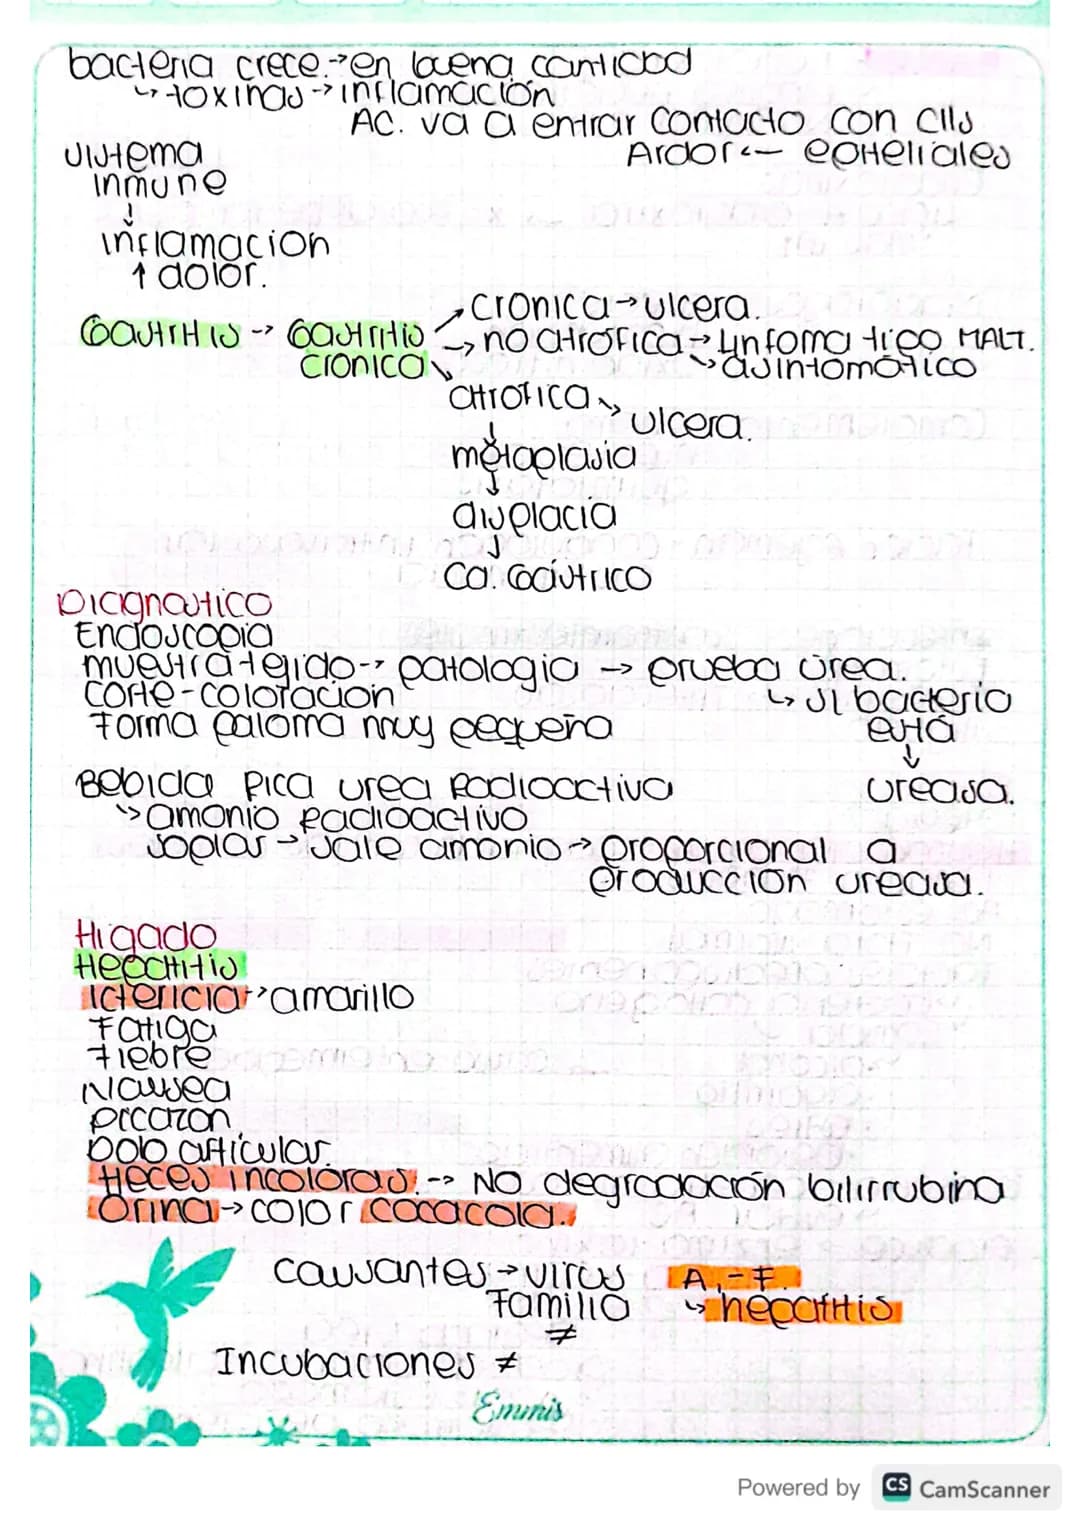 bacteria crece.→en buena cantidad
↳ toxinas → inflamación
AC. va a entrar contacto con cils
Ardor ← epiteliales
sistema
inmune
↓
inflamacion
↑ dolor.
Gastritis → Gastritis
cronica
cronica → ulcera.
→ no atrofica → Linfoma tipo MALT.
↘ asintomático
atrofica ↘ ulcera.
↓
metaplasia
↓
displacia
↓
Ca. Gástrico
Diagnostico
Endoscopia
muestra tejido → patologia → prueba urea.
corte - coloracion
↳ si bacteria
forma paloma muy pequeña
está
↓
ureasa.
Bebida rica urea Radioactiva
↳ amonio radioactivo
soplar → sale amonio → proporcional a
producción ureasa.
Higado
Hepatitis
Ictericia → amarillo
Fatiga
Fiebre
Nausea
picazon
Dolo articular.
Heces incoloras. → No degradación bilirrubina
Orina → color cocacola.
causantes → virus A, - F.
Familia ↳ hepatitis
≠
Incubaciones ≠
Emmis
Powered by CS CamScanner